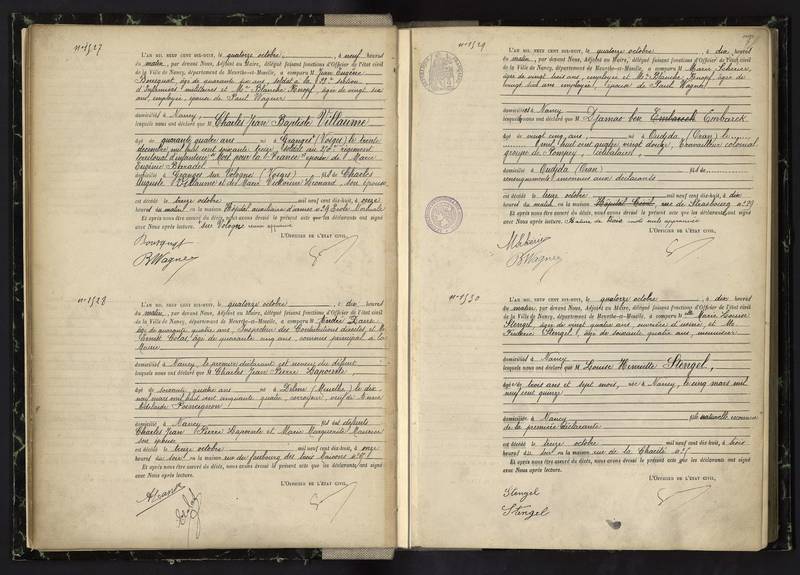 n° 1527
L'AN MIL NEUF CENT DIX-HUIT, le quatorze octobre, à neuf heures
du matin, par devant Nous, Adjoint au Maire, délégué faisant fonctions d'Officier de l'état civil
de la Ville de Nancy, département de Meurthe-et-Moselle, a comparu M Jean Eugène
Bourquet, âgé de quarante six ans, soldat à la section
d'Infirmiers militaires et Me Blanche Knopf, âgée de vingt six
ans, employée, épouse de Paul Wagner
domiciliés à Nancy,
lesquels nous ont déclaré que M Charles Jean Baptiste Villaume
âgé de quarante quatre ans né à Granges (Vosges) le trente
décembre mil huit cent soixante treize, soldat au régiment
territorial d'infanterie "Mort pour la France" époux de Marie
Eugénie
domicilié à Granges sur Vologne (Vosges) fils de Charles
Auguste Villaume et de Marie Victorine, son épouse
est décédé le treize octobre mil neuf cent dix-huit, à onze
heures du matin en la maison Hôpital auxiliaire d'armée n° 29 École Normale
Et après nous être assuré du décès, nous avons dressé le présent acte que les déclarants ont signé
avec Nous après lecture. sur Vologne
L'OFFICIER DE L'ÉTAT CIVIL,
Bourquet
B Wagner
n° 1528
L'AN MIL NEUF CENT DIX-HUIT, le quatorze octobre, à dix heures
du matin, par devant Nous, Adjoint au Maire, délégué faisant fonctions d'Officier de l'état civil
de la Ville de Nancy, département de Meurthe-et-Moselle, a comparu M André
âgé de quarante quatre ans, Inspecteur des Contributions directes et M
Ernest Colas, âgé de quarante cinq ans, commis principal à la
Mairie
domiciliés à Nancy, le premier déclarant est neveu du défunt
lesquels nous ont déclaré que M Charles Jean Pierre Laporte,
âgé de soixante quatre ans né à Delme (Moselle) le dix
neuf mars mil huit cent cinquante quatre, veuf de Anne
Adelaïde
domicilié à Nancy fils des défunts
Charles Jean Pierre Laporte et Marie Marguerite
son épouse
est décédé le treize octobre mil neuf cent dix-huit, à onze
heures du soir en la maison rue du faubourg des trois Maisons n°
Et après nous être assuré du décès, nous avons dressé le présent acte que les déclarants ont signé
avec Nous après lecture.
L'OFFICIER DE L'ÉTAT CIVIL,
n° 1529
L'AN MIL NEUF CENT DIX-HUIT, le quatorze octobre, à dix heures
du matin, par devant Nous, Adjoint au Maire, délégué faisant fonctions d'Officier de l'état civil
de la Ville de Nancy, département de Meurthe-et-Moselle, a comparu M Marie
âgée de vingt trois ans, employée et Me Blanche Knopf, âgée de
vingt six ans, employée, épouse de Paul Wagner
domiciliés à Nancy
lesquels nous ont déclaré que M Djarnas ben Embarech Embarek
âgé de vingt cinq ans, né à Oudjda (Oran) le
mil huit cent quatre vingt douze, travailleur colonial
groupe de Pompey, célibataire,
domicilié à Oudjda (Oran) fils de
renseignements inconnus aux déclarants
est décédé le treize octobre mil neuf cent dix-huit, à dix
heures du matin en la maison Hôpital Civil, rue de Strasbourg n° 29
Et après nous être assuré du décès, nous avons dressé le présent acte que les déclarants ont signé
avec Nous après lecture.
L'OFFICIER DE L'ÉTAT CIVIL,
B Wagner
n° 1530
L'AN MIL NEUF CENT DIX-HUIT, le quatorze octobre, à dix heures
du matin, par devant Nous, Adjoint au Maire, délégué faisant fonctions d'Officier de l'état civil
de la Ville de Nancy, département de Meurthe-et-Moselle, a comparu Mlle Marie Louise
Stengel, âgée de vingt quatre ans, ouvrière d'usine, et M
Frédéric Stengel, âgé de soixante quatre ans, menuisier
domiciliés à Nancy
lesquels nous ont déclaré que M Louise Henriette Stengel,
âgée de trois ans et sept mois, née à Nancy, le cinq mars mil
neuf cent quinze
domiciliée à Nancy fille naturelle reconnue
de la première déclarante
est décédée le treize octobre mil neuf cent dix-huit, à trois
heures du soir en la maison rue de la Charité n° 5
Et après nous être assuré du décès, nous avons dressé le présent acte que les déclarants ont signé
avec Nous après lecture.
L'OFFICIER DE L'ÉTAT CIVIL,
Stengel
Stengel